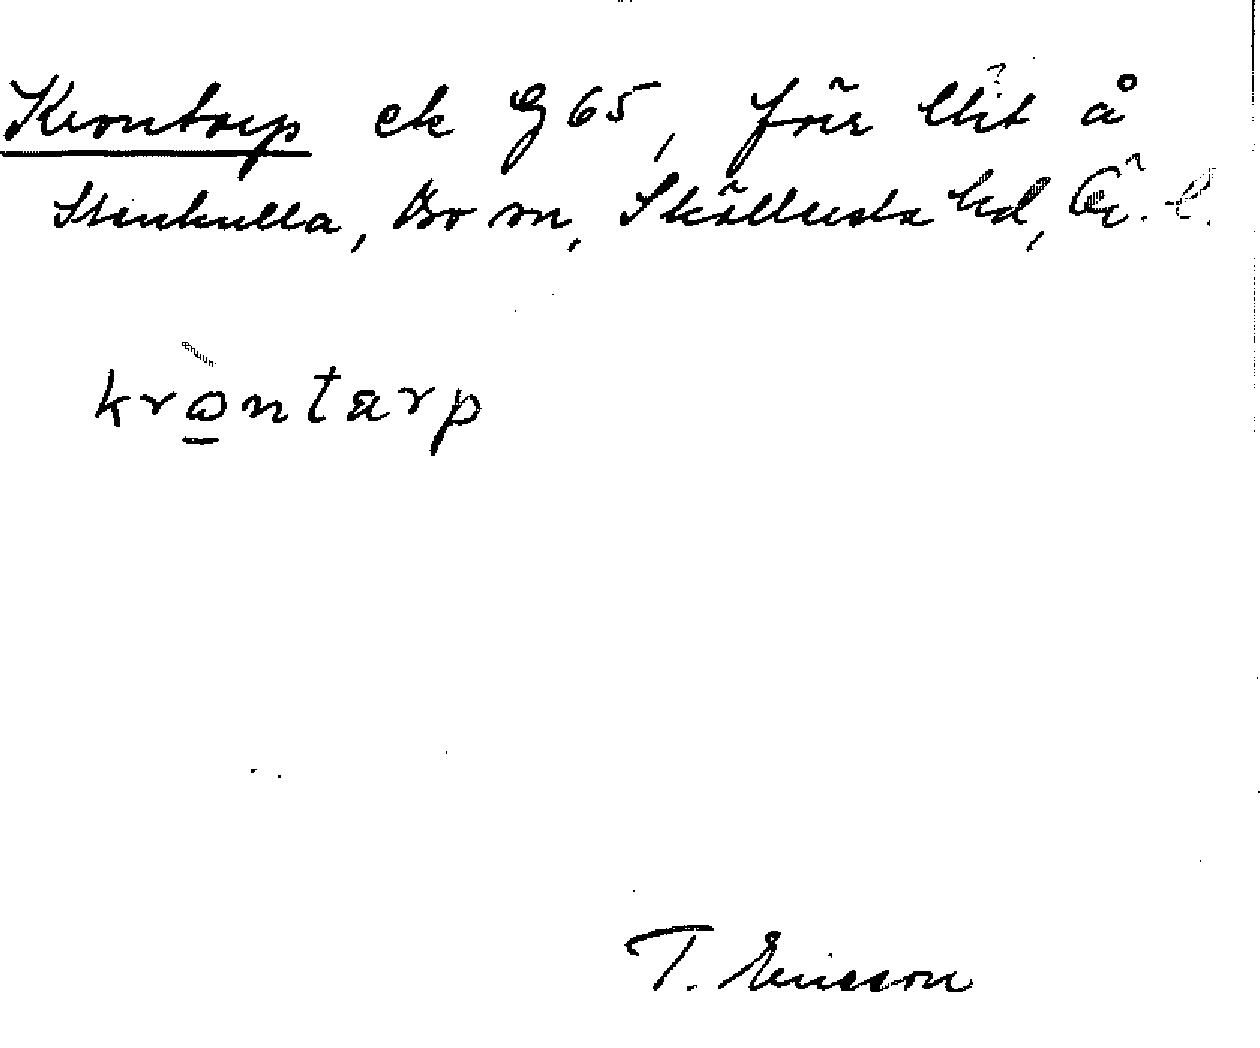 Krontorp ek G 65, förr lht å
Stenkulla, Bo sn, Sköllersta hd, Ör. l.
kròntarp
T. Ericson